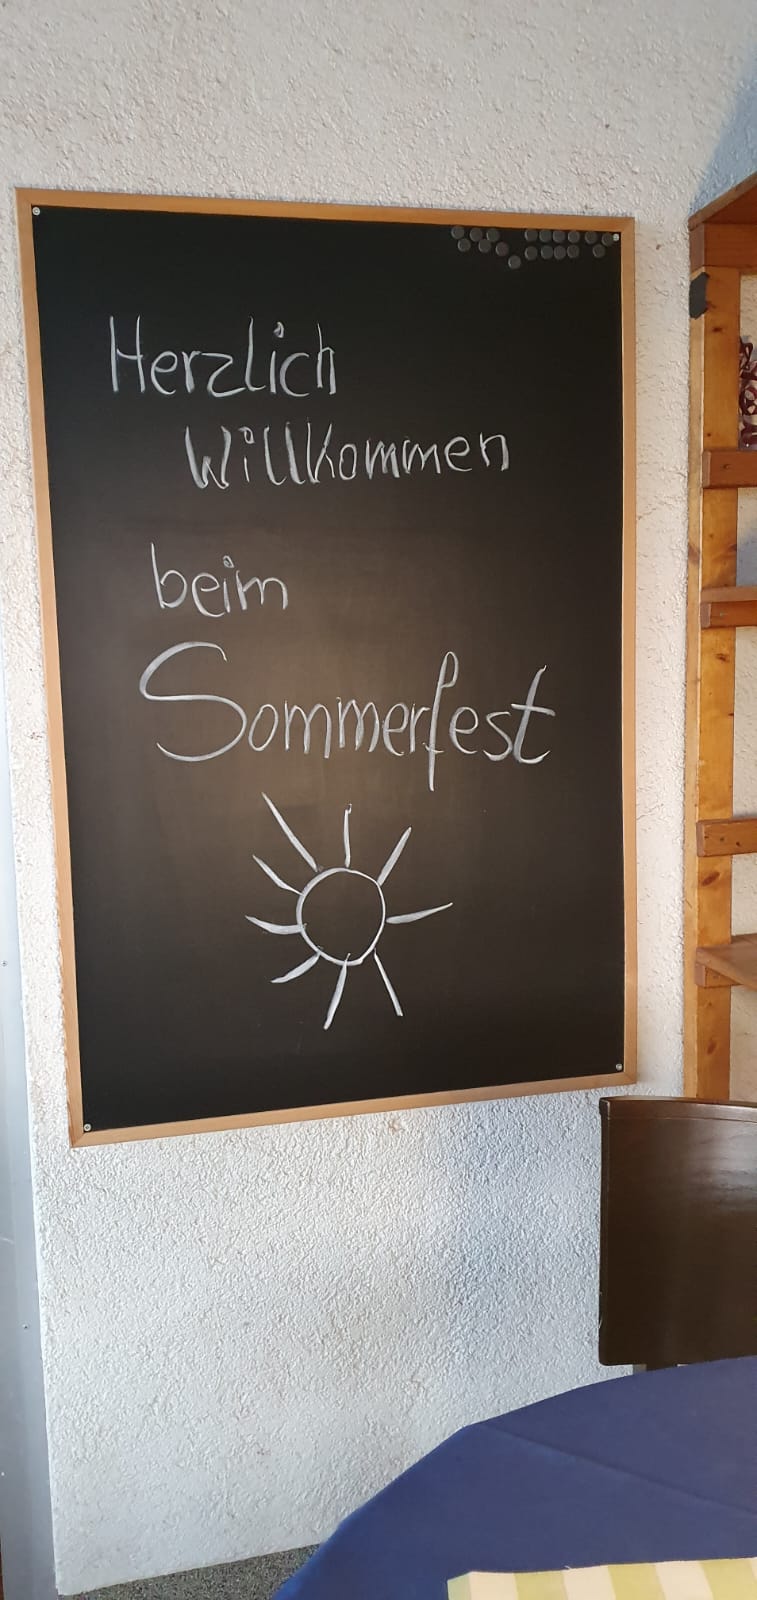 Herzlich
Willkommen
beim
Sommerfest